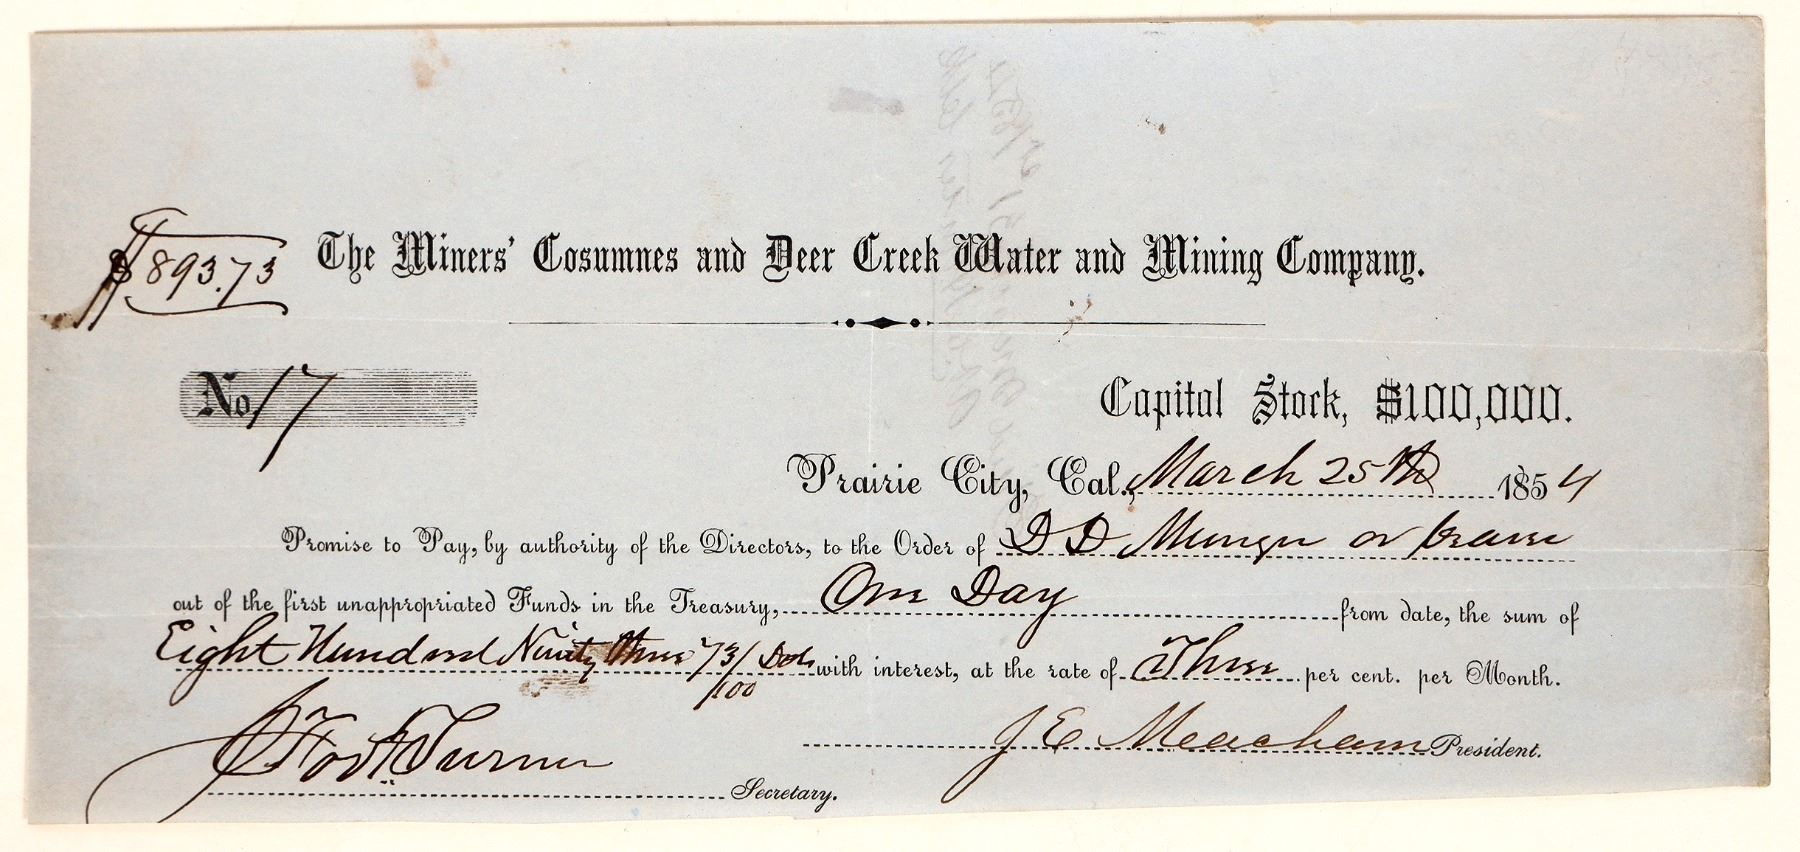 $893.73
The Miners' Cosumnes and Deer Creek Water and Mining Company.
No. 17
Capital Stock, $100,000.
Prairie City, Cal., March 25th 1854
Promise to Pay, by authority of the Directors, to the Order of D D Munger or bearer
out of the first unappropriated Funds in the Treasury, One Day from date, the sum of
Eight Hundred Ninety Three 73/100 Dols with interest, at the rate of Three per cent. per Month.
J E Meacham President.
Turner Secretary.